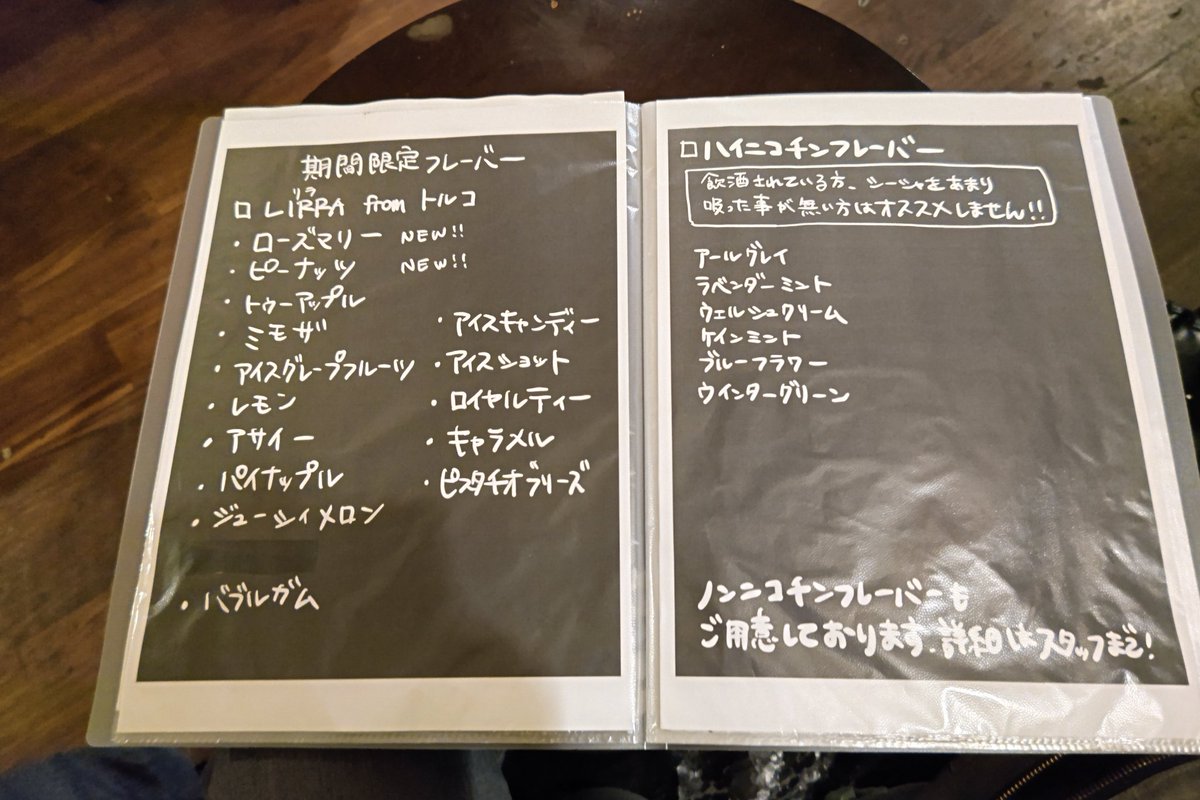 期間限定フレーバー
リラ
□ LIRRA from トルコ
・ローズマリー NEW!!
・ピーナッツ NEW!!
・トゥーアップル
・ミモザ
・アイスグレープフルーツ
・レモン
・アサイー
・パイナップル
・ジューシィメロン
・バブルガム
・アイスキャンディー
・アイスショット
・ロイヤルティー
・キャラメル
・ピスタチオブリーズ
□ハイニコチンフレーバー
飲酒されている方、シーシャをあまり
吸った事が無い方はオススメしません!!
アールグレイ
ラベンダーミント
ウェルシュクリーム
ケインミント
ブルーフラワー
ウインターグリーン
ノンニコチンフレーバーも
ご用意しております.詳細はスタッフまで!